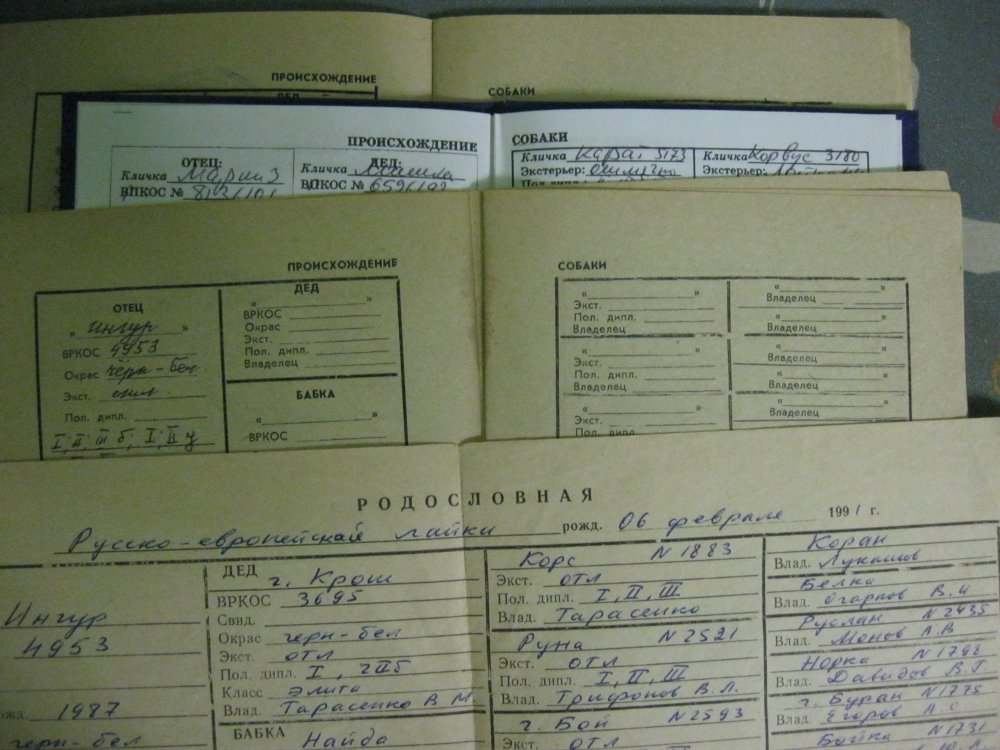 ПРОИСХОЖДЕНИЕ
СОБАКИ
ДЕД
ПРОИСХОЖДЕНИЕ
СОБАКИ
ОТЕЦ:
Кличка
ВПКОС №
ДЕД:
Кличка
ВПКОС №
Кличка Карат 5173
Экстерьер: отлично
Пол. дипл.
Кличка Корвус 3180
Экстерьер:
ПРОИСХОЖДЕНИЕ
СОБАКИ
ОТЕЦ
" Ингур "
ВРКОС 4953
Окрас черн-бел
Экст.
Пол. дипл.
I, II, III б, I, II у
ДЕД
" "
ВРКОС
Окрас
Экст.
Пол. дипл.
Владелец
БАБКА
" "
ВРКОС
" "
Экст.
Пол. дипл.
Владелец
" "
Экст.
Пол. дипл.
Владелец
" "
Экст.
Пол. дипл.
" "
Владелец
" "
Владелец
" "
Владелец
" "
Владелец
" "
Владелец
РОДОСЛОВНАЯ
Русско-европейской лайки рожд. 06 февраля 1991 г.
Ингур
4953
1987
черн-бел
ДЕД
ч. Крош
ВРКОС 3695
Свид.
Окрас черн-бел
Экст. отл
Пол. дипл. I, 2IIб
Класс Элита
Влад. Тарасенко В М
БАБКА
Найда
Корс N 1883
Экст. отл
Пол. дипл. I, II, III
Влад. Тарасенко
Руна N 2521
Экст. отл
Пол. дипл. I, II, III
Влад. Трифонов В.Л.
ч. Бой N 2593
Экст. отл
Коран
Влад. Лукашов
Белка
Влад. Огарков В.И
Руслан N 2435
Влад. Монов А.В
Норка N 1798
Влад. Давидов В.Г.
ч. Буран N 1775
Влад. Егоров А.С
Бойка N 1731